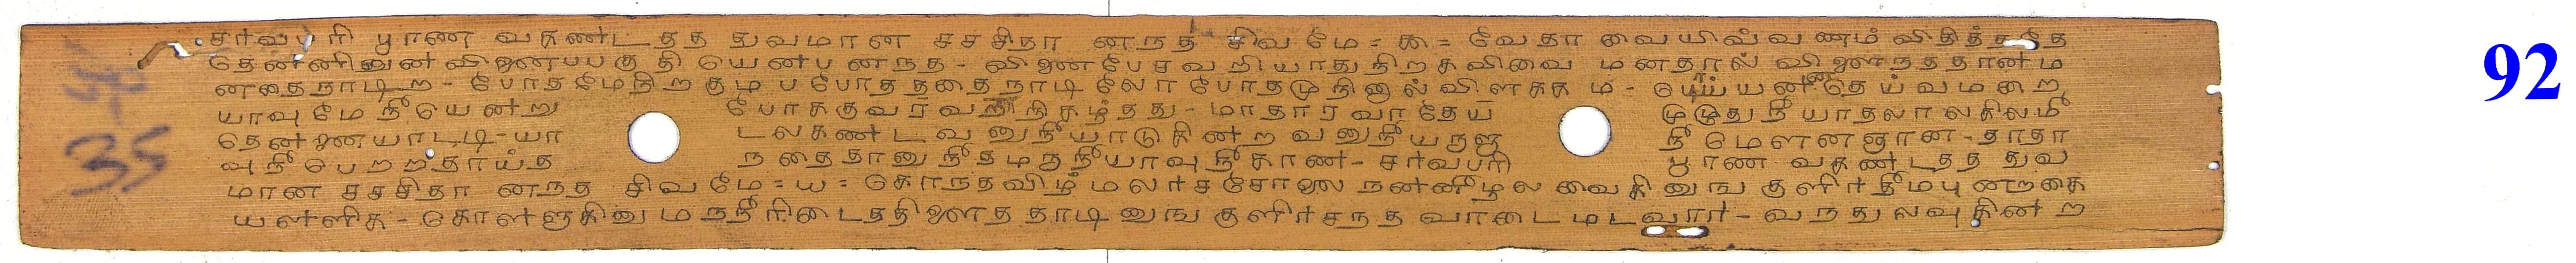 சர்வபரி பூரண வகண்டதத துவமான சசசிதா னநத சிவமே = க = வேதா வையிவ்வணம் விதித்ததே
தென்னினுன வினைபபகுதி யென்பனநத - வினை பேசவறியாதுநிறகவிவை மனதால் விளைநததானம
னதைநாடிற - போதமேநிறகும பபோதததை நாடிலோ போதமுநினால் விளககம் - பெய்யனதெய்வமறை
யாவுமே நீயென்று போககுவரவறநிகழ்நதது - மாதாரவாதேய முமுதுநீ யாதலாலகிலமீ
தென்னையாட்டி - யா டலகண்டவனுநீ யாடுகின்றவனுநீ யருளு நீமௌனஞான - தாதா
வுநீ பெறறதாய்த நதைதானு நீதமருநீ யாவு நீ காண் - சர்வபரி பூரண வகண்டதத துவ
மான சசசிதா னநத சிவமே = ய = கொநதவிழ் மலர்சசோலை நன்னீழல வைகினுங குளிர்தீமபுனறகை
யள்ளிக - கொள்ளுகினு மநநீரிடைததிளைத தாடினுங குளிர்சநத வாடைமடவார் - வநதுலவுகின்ற
35
92